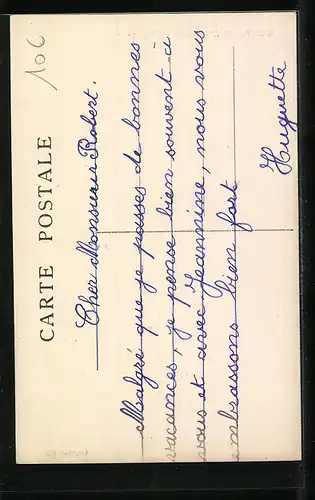 106
CARTE POSTALE
Cher Monsieur Robert.
Malgré que je passes de bonnes
vacances, je pense bien souvent à
vous et avec Jeannine, nous vous
embrassons bien fort
Huguette